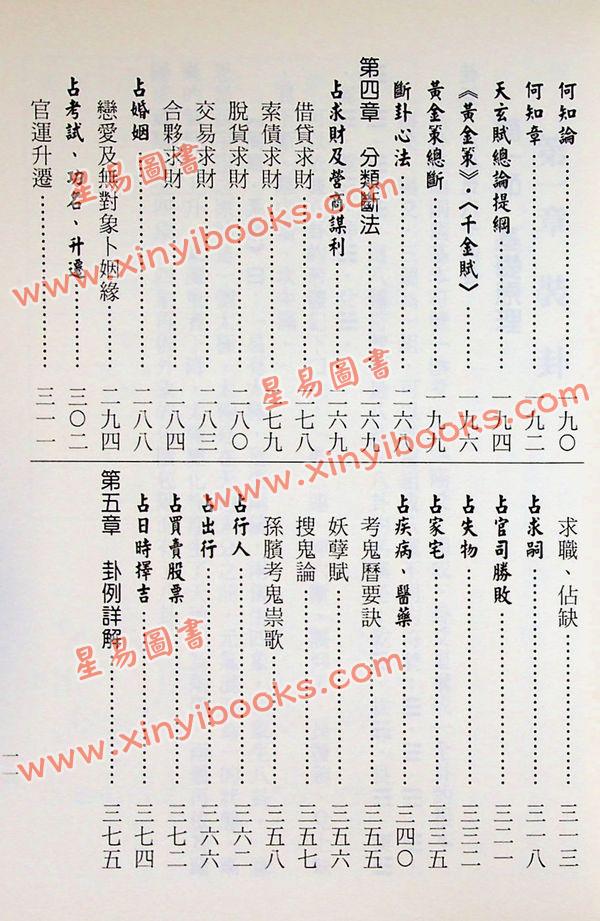 何知論……一九〇
何知章……一九二
天玄賦總論提綱……一九四
《黃金策》·〈千金賦〉……一九六
黃金策總斷……一九九
斷卦心法……二六八
第四章 分類斷法……二六九
占求財及營商謀利……二六九
借貸求財……二七八
索債求財……二七九
脫貨求財……二八〇
交易求財……二八三
合夥求財……二八四
占婚姻……二八八
戀愛及無對象卜姻緣……二九四
占考試、功名、升遷……三〇二
官運升遷……三一一
求職、佔缺……三一三
占求嗣……三一八
占官司勝敗……三二一
占失物……三三二
占家宅……三三五
占疾病、醫藥……三四〇
考鬼曆要訣……三五五
妖孽賦……三五六
搜鬼論……三五七
孫臏考鬼祟歌……三五八
占行人……三六二
占出行……三六六
占買賣股票……三七二
占日時擇吉……三七四
第五章 卦例詳解……三七五
一一
星易圖書
www.xinyibooks.com
星易圖書
www.xinyibooks.com
星易圖書
www.xinyibooks.com
星易圖書
www.xinyibooks.com